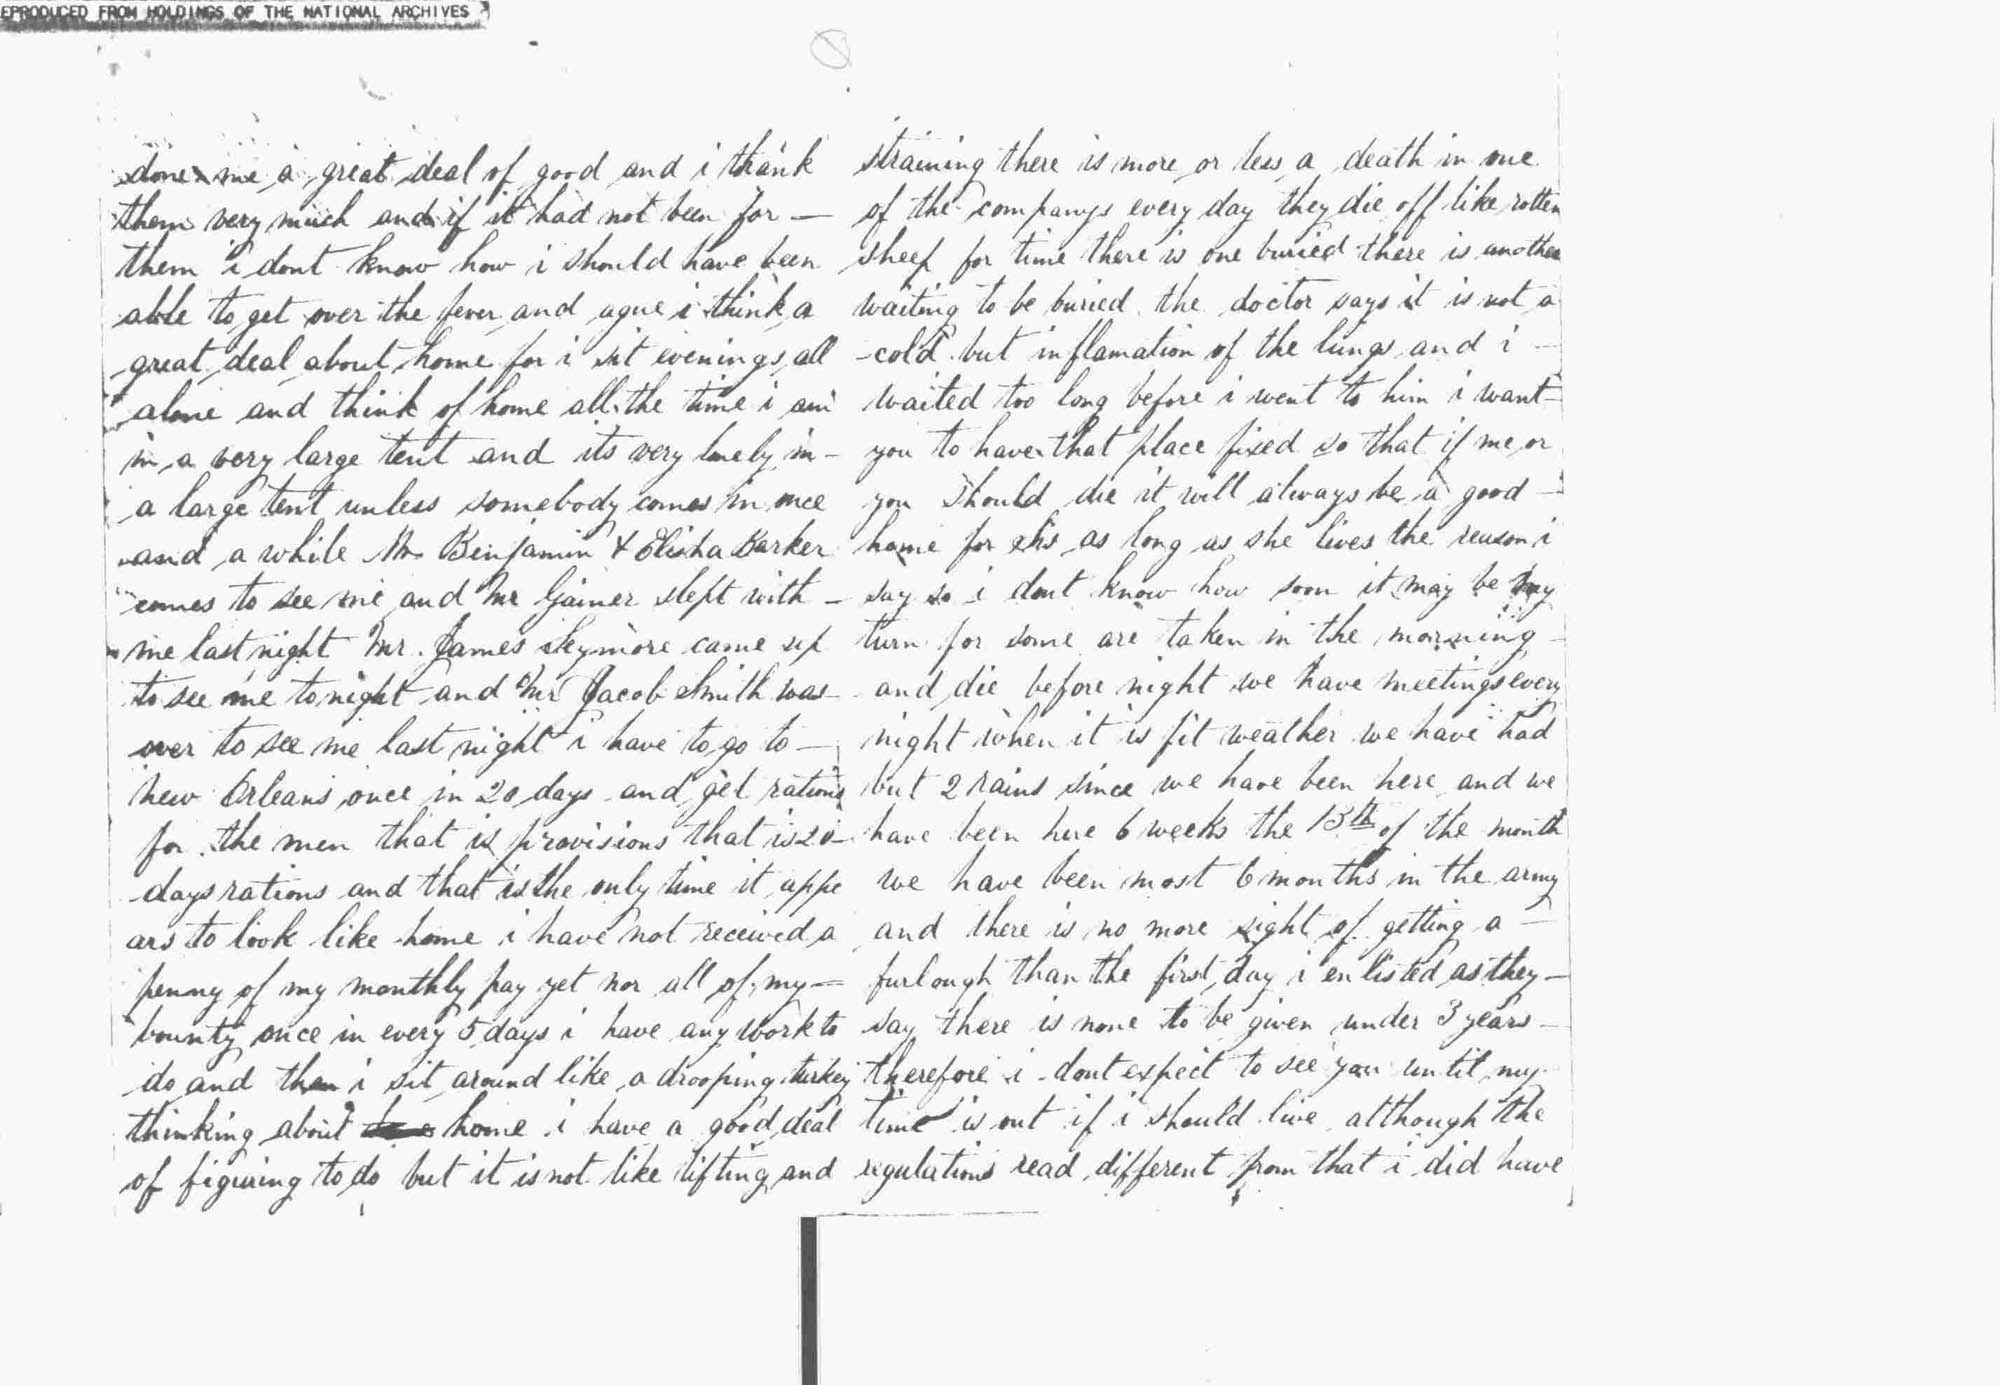 EPRODUCED FROM HOLDINGS OF THE NATIONAL ARCHIVES
done me a great deal of good and i thank
them very much and if it had not been for —
them i dont know how i should have been
able to get over the fever and ague i think a
great deal about home for i sit evenings all
alone and think of home all the time i am
in a very large tent and its very lonely in —
a large tent unless somebody comes in once
and a while Mr Benjamin & Elisha Barker
comes to see me and Mr Gainer slept with —
me last night Mr. James Seymore came up
to see me tonight and Mr Jacob Smith was
over to see me last night i have to go to —
new Orleans once in 20 days and get rations
for the men that is provisions that is 20 —
days rations and that is the only time it appe
ars to look like home i have not received a
penny of my monthly pay yet nor all of my —
bounty once in every 5 days i have any work to
do and then i sit around like a drooping turkey
thinking about home i have a good deal
of figuring to do but it is not like lifting and
straining there is more or less a death in one
of the companys every day they die off like rotten
sheep for time there is one buried there is another
waiting to be buried the doctor says it is not a
cold but inflamation of the lungs and i —
waited too long before i went to him i want
you to have that place fixed so that if me or
you should die it will always be a good —
home for as long as she lives the reason i
say so i dont know how soon it may be my
turn for some are taken in the morning
and die before night we have meetings every
night when it is fit weather we have had
but 2 rains since we have been here and we
have been here 6 weeks the 13th of the month
we have been most 6 months in the army
and there is no more sight of getting a —
furlough than the first day i enlisted as they —
say there is none to be given under 3 years —
therefore i dont expect to see you until my
time is out if i should live although the
regulations read different from that i did have